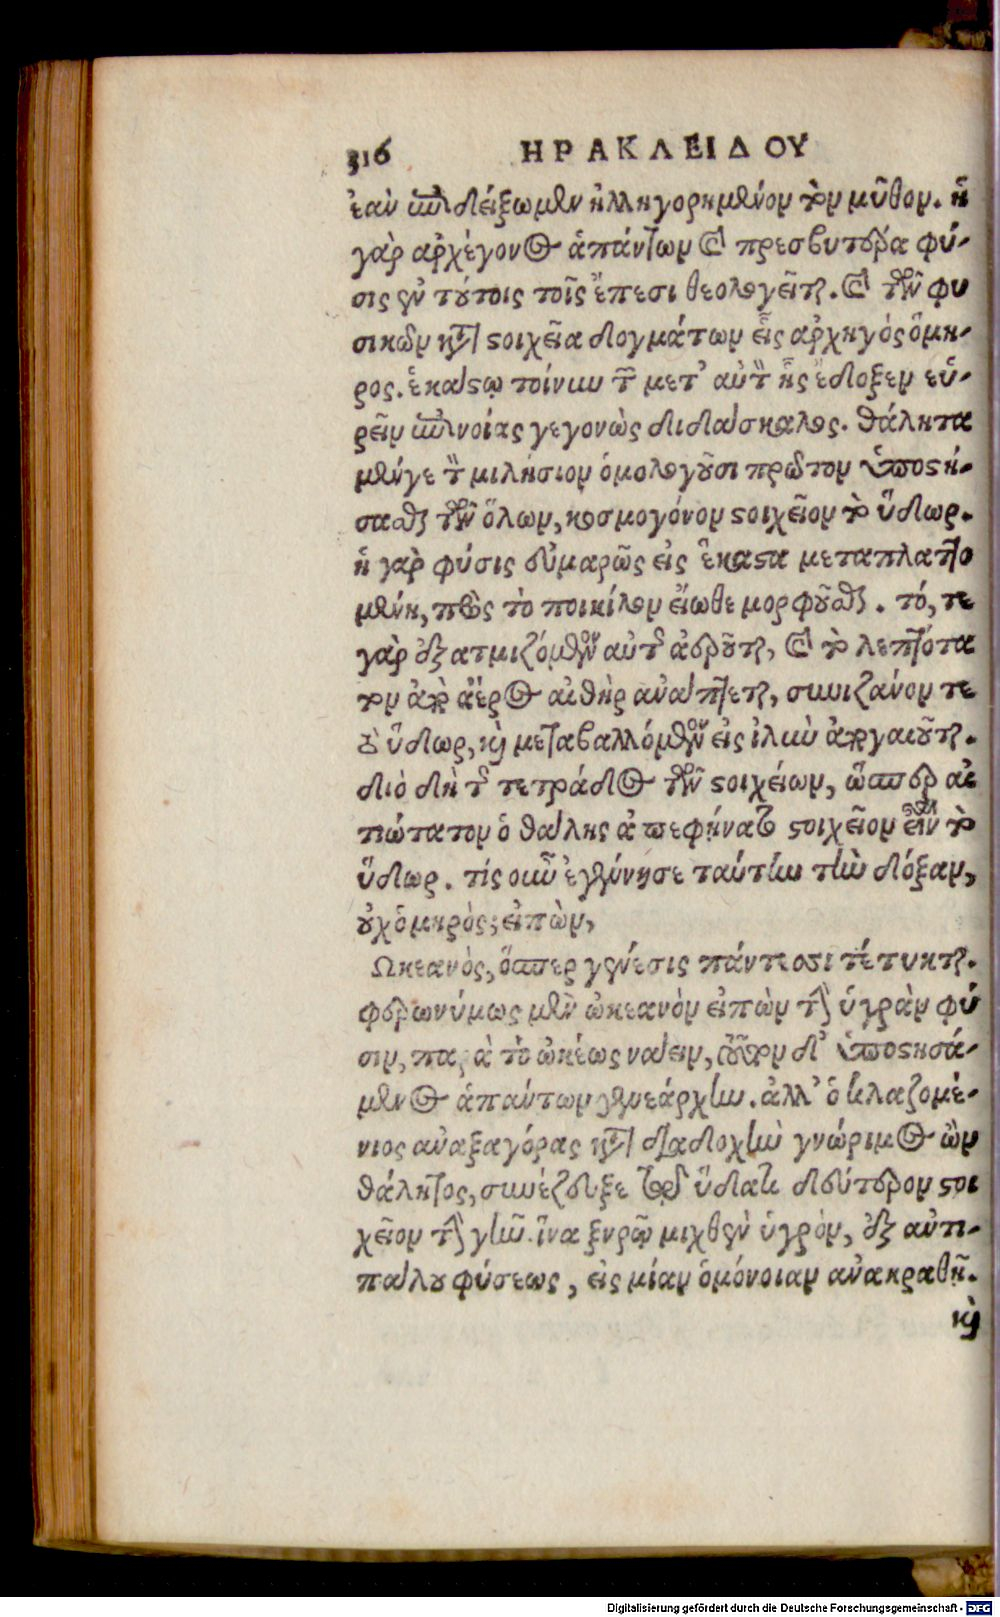 316 ΗΡΑΚΛΕΙΔΟΥ
ἐὰν ἐπιδείξωμεν ἠλληγορημένον τὸν μῦθον. ἡ
γὰρ ἀρχέγονος ἁπάντων καὶ πρεσβυτέρα φύ-
σις ἐν τούτοις τοῖς ἔπεσι θεολογεῖται. καὶ τῶν φυ
σικῶν κατὰ στοιχεῖα δογμάτων εἷς ἀρχηγὸς ὅμη-
ρος. ἑκάστῳ τοίνυν τῶν μετ' αὐτὸν ἧς ἔδοξεν εὑ-
ρεῖν ἐπινοίας γεγονὼς διδάσκαλος. Θάλητα
μέν γε τὸν μιλήσιον ὁμολογοῦσι πρῶτον ὑποστή-
σασθαι τῶν ὅλων, κοσμογόνον στοιχεῖον τὸ ὕδωρ.
ἡ γὰρ φύσις εὐμαρῶς εἰς ἕκαστα μεταπλαττο
μένη, πρὸς τὸ ποικίλον εἴωθε μορφοῦσθαι. τό, τε
γὰρ ἐξατμιζόμενον αὐτῆς ἀεροῦται, καὶ τὸ λεπτότα
τον ἀπὸ ἀέρος αἰθὴρ ἀνάπτεται, συνιζάνον τε
τὸ ὕδωρ, καὶ μεταβαλλόμενον εἰς ἰλὺν ἀπογαιοῦται.
διὸ δὴ τῆς τετράδος τῶν στοιχείων, ὥσπερ αἰ
τιώτατον ὁ θάλης ἀπεφήνατο στοιχεῖον εἶναι τὸ
ὕδωρ. τίς οὖν ἐγέννησε ταύτην τὴν δόξαν,
οὐχ ὁμηρὸς; εἰπὼν,
Ωκεανὸς, ὅσπερ γένεσις πάντεσσι τέτυκται.
φερωνύμως μὲν ὠκεανὸν εἰπὼν τὴν ὑγρὰν φύ
σιν, παρὰ τὸ ὠκέως νάειν, τοῦτον δ' ὑποστησά-
μενος ἁπάντων γενεάρχην. ἀλλ' ὁ κλαζομέ-
νιος ἀναξαγόρας κατὰ διαδοχὴν γνώριμος ὢν
θάλητος, συνέζευξε τῷ ὕδατι δεύτερον στοι
χεῖον τὴν γῆν. ἵνα ξηρῷ μιχθὲν ὑγρὸν, ἐξ ἀντι-
πάλου φύσεως, εἰς μίαν ὁμόνοιαν ἀνακραθῇ.
καὶ
Digitalisierung gefördert durch die Deutsche Forschungsgemeinschaft - DFG